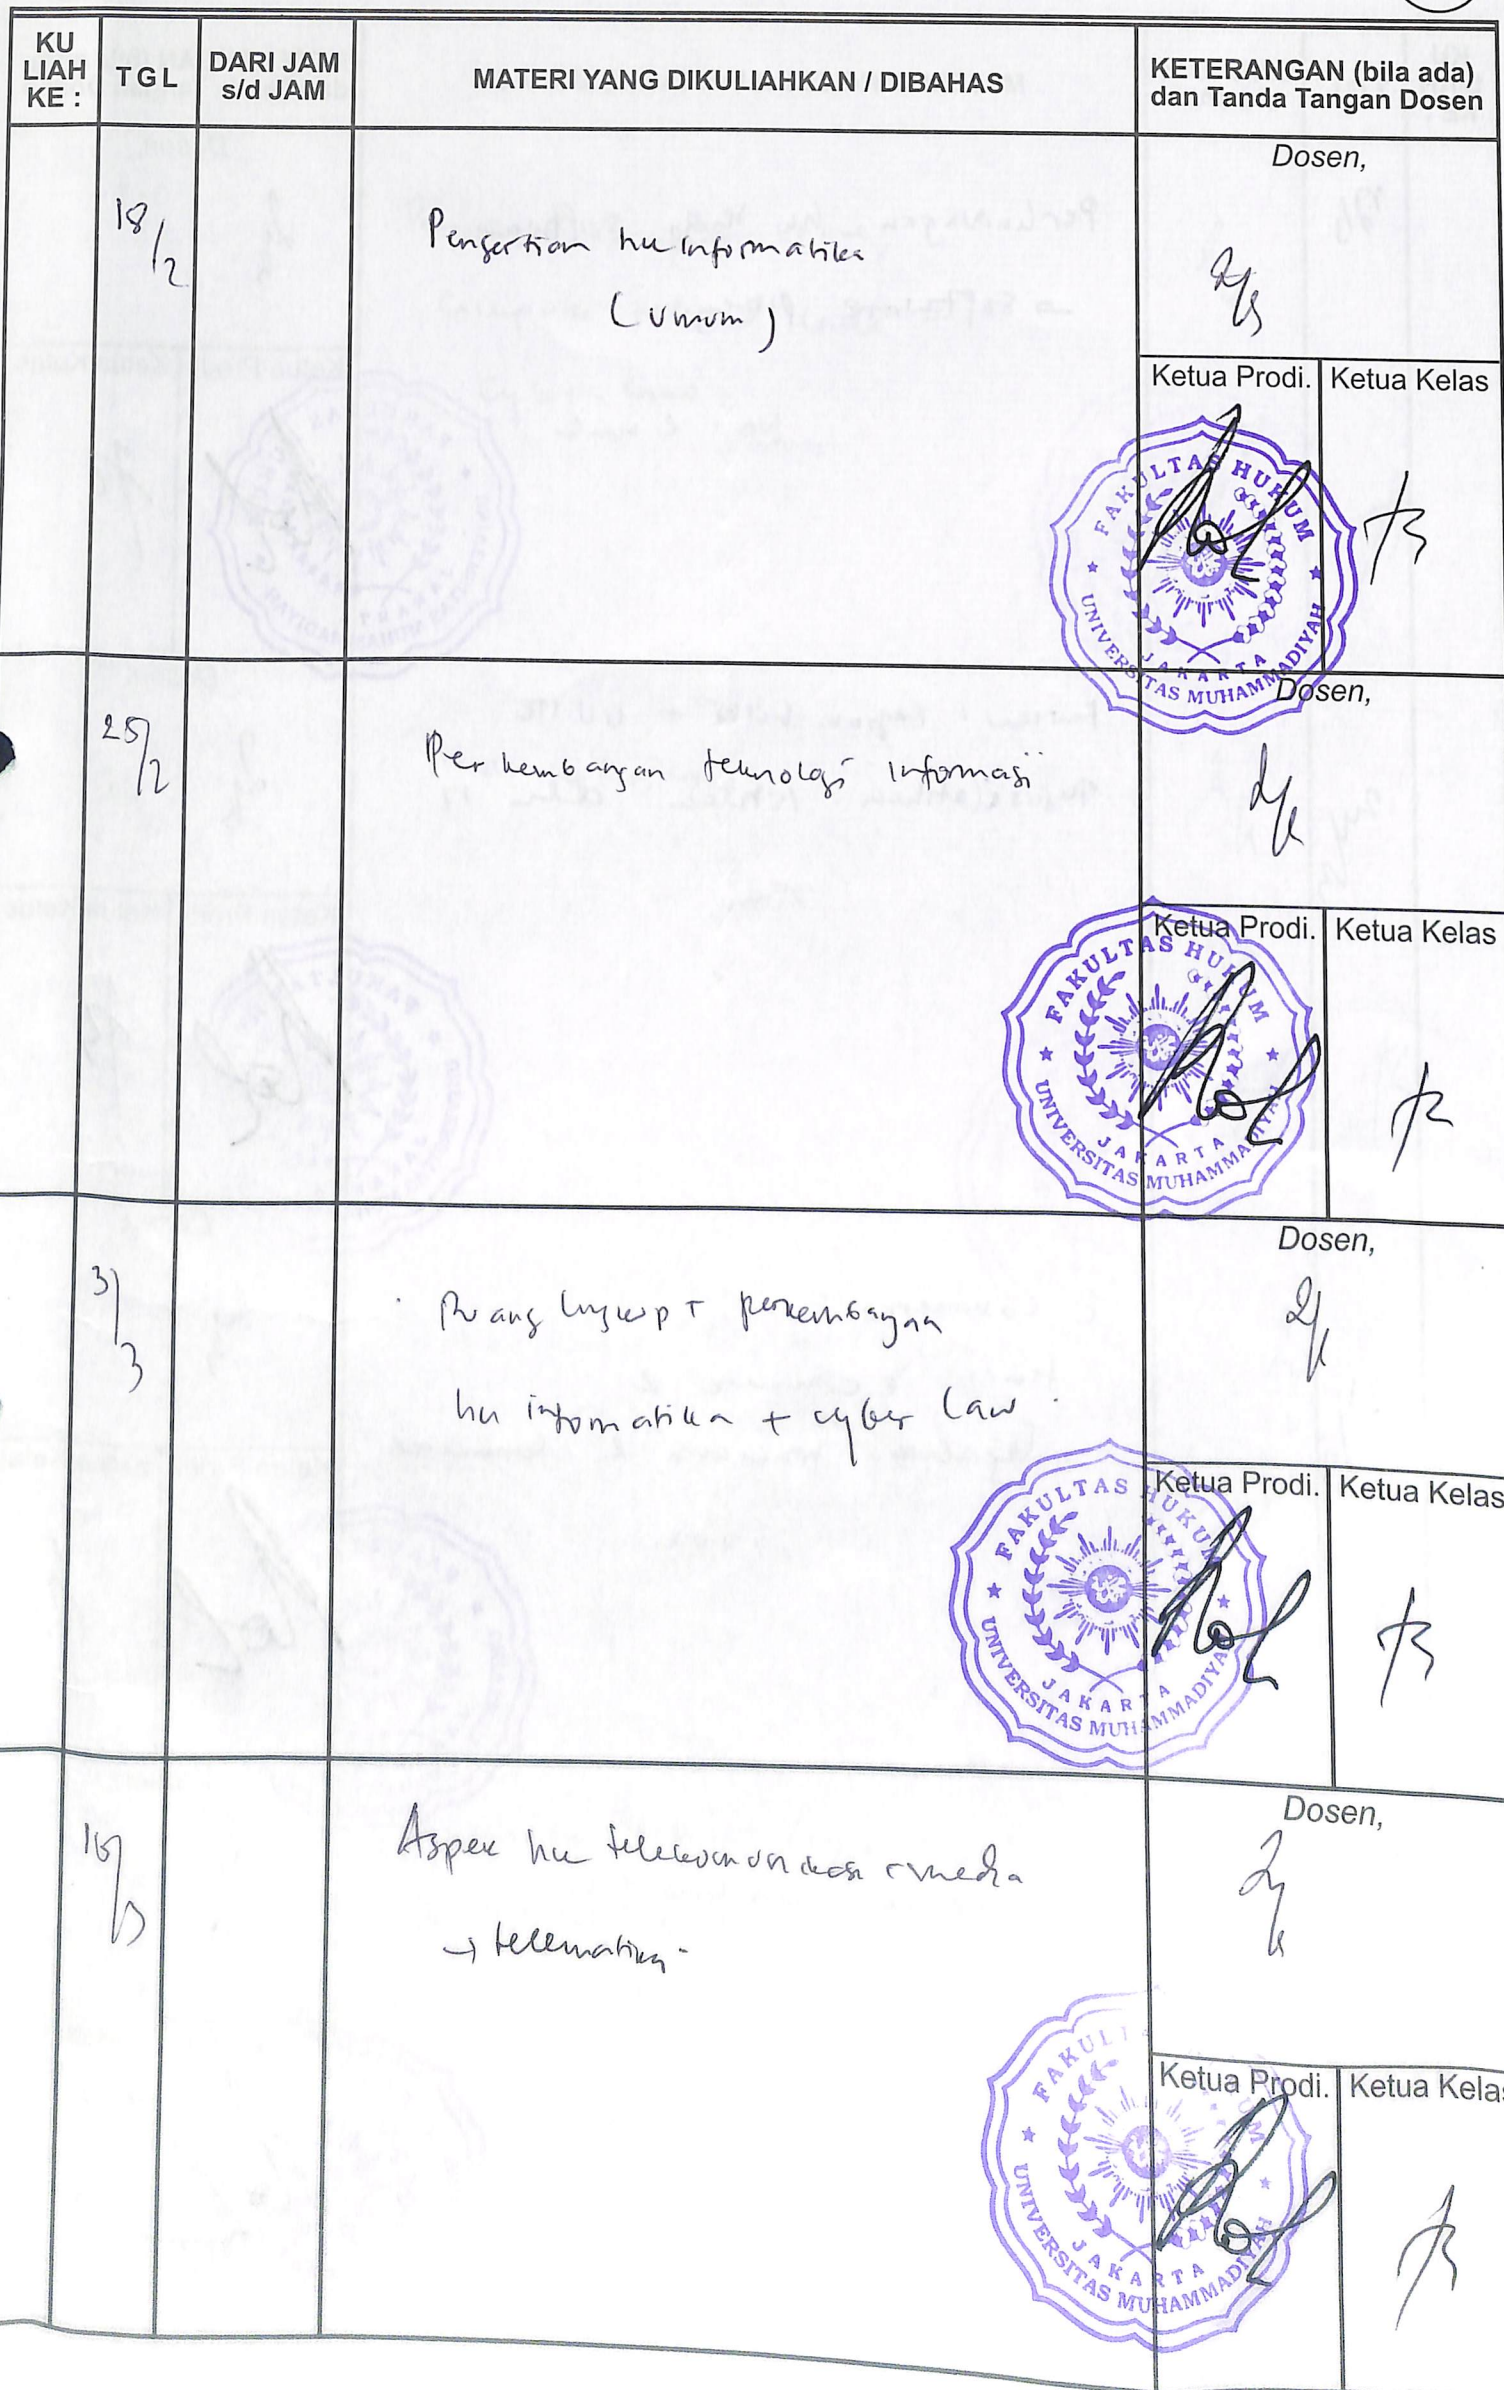 KU LIAH KE :
TGL
DARI JAM s/d JAM
MATERI YANG DIKULIAHKAN / DIBAHAS
KETERANGAN (bila ada) dan Tanda Tangan Dosen
18/2
Pengertian hu informatika
(umum)
Dosen,
Ketua Prodi.
Ketua Kelas
FAKULTAS HUKUM
JAKARTA
UNIVERSITAS MUHAMMADIYAH
25/2
Perkembangan teknologi informasi
Dosen,
Ketua Prodi.
Ketua Kelas
FAKULTAS HUKUM
JAKARTA
UNIVERSITAS MUHAMMADIYAH
3/3
Ruang lingkup + perkembangan
hu informatika + cyber law
Dosen,
Ketua Prodi.
Ketua Kelas
FAKULTAS HUKUM
JAKARTA
UNIVERSITAS MUHAMMADIYAH
Aspek hu telekomunikasi media
→ telematika
Dosen,
Ketua Prodi.
Ketua Kelas
JAKARTA
UNIVERSITAS MUHAMMADIYAH